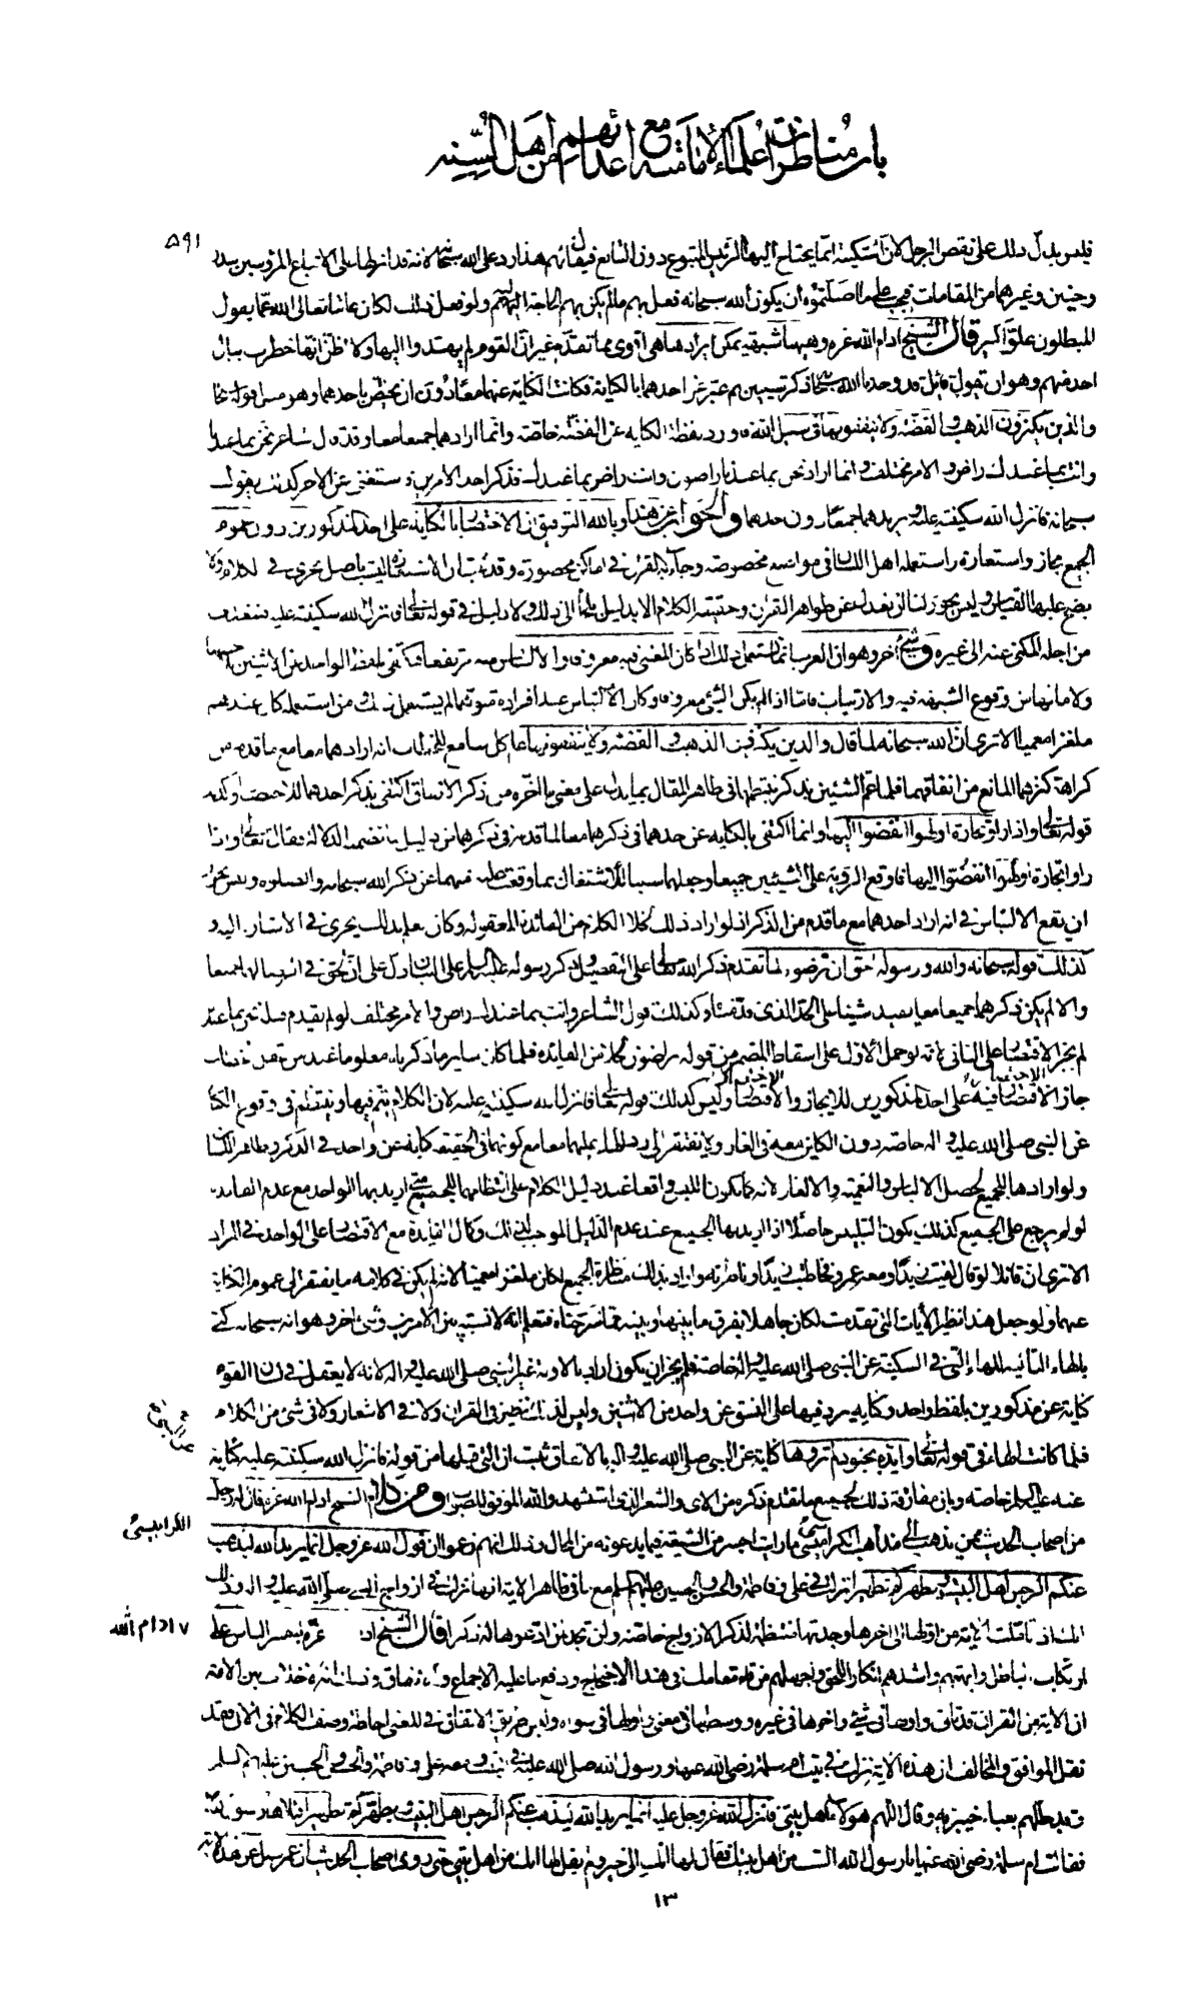 باب مناظرات علماء الامامية مع اعدائهم من اهل السنة
٥٩١
فليس يدل ذلك على نقص الرجل لان السكينة انما يحتاج اليها الرئيس المتبوع دون التابع فيقال لهم هذا رد على الله سبحانه لانه قد انزلها على الاتباع المرؤسين ببدر
وحنين وغيرهما من المقامات فيجب على ما اصلتموه ان يكون الله سبحانه فعل بهم ما لم يكن بهم الحاجة اليه ولو فعل ذلك لكان عابثا تعالى الله عما يقول
المبطلون علوا كبيرا قال الشيخ ادام الله عزه وههنا شبهة يمكن ايرادها هي اقوى مما تقدم غير ان القوم لم يهتدوا اليها ولا اظن انها خطرت ببال
احد منهم وهو ان يقول قائل قد وجدنا الله سبحانه ذكر شيئين ثم عبر عن احدهما بالكناية فكانت الكناية عنهما معا دون ان يختص باحدهما وهو مثل قوله تعالى
والذين يكنزون الذهب والفضة ولا ينفقونها في سبيل الله فاورد لفظة الكناية عن الفضة خاصة وانما ارادهما جميعا معا وقد قال الشاعر نحن بما عندنا
وانت بما عندك راض والامر مختلف وانما اراد نحن بما عندنا راضون وانت راض بما عندك فذكر احد الامرين فاستغنى عن الاخر كذلك يقول
سبحانه فانزل الله سكينته عليه يريدهما جميعا دون احدهما والجواب عن هذا وبالله التوفيق ان الاختصار بالكناية على احد المذكورين دون عموم
الجميع مجاز واستعارة واستعمله اهل اللسان في مواضع مخصوصة وجاء به القرآن في اماكن محصورة وقد ثبت ان الاستعارة ليست باصل يجري في الكلام ولا
يصح عليها القياس وليس يجوز لنا ان نعدل عن ظواهر القرآن وحقيقة الكلام الا بدليل يلجأ الى ذلك ولا دليل في قوله تعالى فانزل الله سكينته عليه فنتعدى
من اجله المكنى عنه الى غيره وشئ اخر وهو ان العرب انما تستعمل ذلك اذا كان المعنى فيه معروفا والالتباس منه مرتفعا فتكتفي بلفظ الواحد عن الاثنين
ولامانها من وقوع الشبهة فيه والارتياب فاما اذا لم يكن الشئ معروفا وكان الالتباس عند افراده متوهما لم يستعمل ذلك ومن استعمله كان عندهم
ملغزا معميا الا ترى ان الله سبحانه لما قال والذين يكنزون الذهب والفضة ولا ينفقونها علم كل سامع للخطاب انه ارادهما معا مع ما قدمه من
كراهة كنزهما المانع من انفاقهما فلما عم الشيئين بذكر ينتظمهما في ظاهر المقال بما يدل على معنى ما اخره من ذكر الانفاق اكتفى بذكر احدهما للاختصار وكذلك
قوله تعالى واذا راوا تجارة او لهوا انفضوا اليها وانما اكتفى بالكناية عن احدهما في ذكرهما معا لما قدمه في ذكرهما من دليل ما تضمنه الدلالة فقال تعالى واذا
راوا تجارة او لهوا انفضوا اليها فاوقع الرؤية على الشيئين جميعا وجعلهما سببا للاشتغال بما وقعت عليه منهما عن ذكر الله سبحانه والصلوة وليس يجوز
ان يقع الالتباس في انه اراد احدهما مع ما قدمه من الذكر اذ لو اراد ذلك لخلا الكلام من الفائدة المعقولة وكان
كذلك قوله سبحانه والله ورسوله احق ان يرضوه لما تقدم ذكر الله تعالى على التفصيل وذكر رسوله عليه السلام على البيان دل على ان الحق في الرضا لهما جميعا
والا لم يكن ذكرهما جميعا معا يفيد شيئا على الحد الذي قدمناه وكذلك قول الشاعر وانت بما عندك راض والامر مختلف لو لم يتقدم قبله نحن بما عندنا
لم يجز الاقتصار على الثاني لانه لو حمل الاول على اسقاط المضمر من قوله راضون لخلا من الفائدة فلما كان سائر ما ذكرناه معلوما عند من عقل الخطاب
الاختصار
جاز الاقتصار فيه على احد المذكورين للايجاز والاقتصار وليس كذلك قوله تعالى فانزل الله سكينته عليه لان الكلام يتم فيها وينتظم في وقوع الكناية
عن النبي صلى الله عليه واله خاصة دون الكاين معه في الغار ولا يفتقر الى رد الهاء عليهما معا مع كونها في الحقيقة كناية عن واحد في الذكر وظاهر اللسان
ولو اراد بها الجميع لحصل الالتباس والتعمية والالغاز لانه كما يكون اللبس واقعا عند دليل الكلام على انتظامهما للجميع متى اريد بها الواحد مع عدم الفائدة
لو لم يرجع على الجميع كذلك يكون التلبيس حاصلا اذا اريد بها الجميع عند عدم الدليل الموجب لذلك وكمال الفايدة مع الاقتصار على الواحد في المراد
الا ترى ان قائلا لو قال لقيت زيدا ومعه عمرو فخاطبت زيدا وناظرته واراد بذلك مناظرة الجميع لكان ملغزا معميا لانه لم يكن في كلامه ما يفتقر الى عموم الكناية
عنهما ولو جعل هذا نظير الايات التي تقدمت لكان جاهلا بفرق ما بينها وبينه مما شرحناه فتعلم انه لا نسبة بين الامرين وشئ اخر وهو انه سبحانه كنى
بالهاء التالية للهاء التي في السكينة عن النبي صلى الله عليه واله خاصة فلم يجز ان يكون اراد بالاولة غير النبي صلى الله عليه واله لانه لا يعقل في لسان القوم
كناية عن مذكورين بلفظ واحد وكناية يرد فيها على النسق عن واحد من الاثنين وليس لذلك نظير في القران ولا في الاشعار ولا في شئ من الكلام
فلما كانت الهاء في قوله تعالى وايده بجنود لم تروها كناية عن النبي صلى الله عليه واله بالاتفاق ثبت ان التي قبلها من قوله فانزل الله سكينته عليه كناية
عنه عليه السلام خاصة وبان مفارقة ذلك لجميع ما تقدم ذكره من الاي والشعر الذي استشهد والله الموفق للصواب ومن كلام الشيخ ادام الله عزه قال له رجل
من اصحاب الحديث ممن يذهب الى مذاهب الكرابيسي ما رايت اجسر من الشيعة فيما يدعونه من المحال وذلك انهم زعموا ان قول الله عز وجل انما يريد الله ليذهب
الكرابيسي
عنكم الرجس اهل البيت ويطهركم تطهيرا نزلت في علي وفاطمة والحسن والحسين عليهم السلام مع ما في ظاهر الاية انها نزلت في ازواج النبي صلى الله عليه واله وذلك
انك اذا تاملت الاية من اولها الى اخرها وجدتها منتظمة لذكر الازواج خاصة ولن تجد لمن ادعوها له ذكرا قال الشيخ ادام الله عزه اجسر الناس على
ادام الله
ارتكاب الباطل وابهتهم واشدهم انكارا للحق واجهلهم من قام مقامك في هذا الاحتجاج ودفع ما عليه الاجماع والاتفاق وذلك انه لا خلاف بين الامة
ان الاية من القران قد تاتي واولها في شئ واخرها في غيره ووسطها في معنى واولها في سواه وليس طريق الاتفاق في المعنى احاطة وصف الكلام في الاي فقد
نقل الموافق والمخالف ان هذه الاية نزلت في بيت ام سلمة رضي الله عنها ورسول الله صلى الله عليه واله في البيت ومعه علي وفاطمة والحسن والحسين عليهم السلم
وقد جللهم بعباء خيبرية وقال اللهم هؤلاء اهل بيتي فانزل الله عز وجل عليه انما يريد الله ليذهب عنكم الرجس اهل البيت ويطهركم تطهيرا فتلاها رسول الله
فقالت ام سلمة رضي الله عنها يا رسول الله الست من اهل بيتك فقال لها انك الى خير ولم يقل لها انك من اهل بيتي حتى روى اصحاب الحديث ان عمر سئل عن هذه الاية
١٣